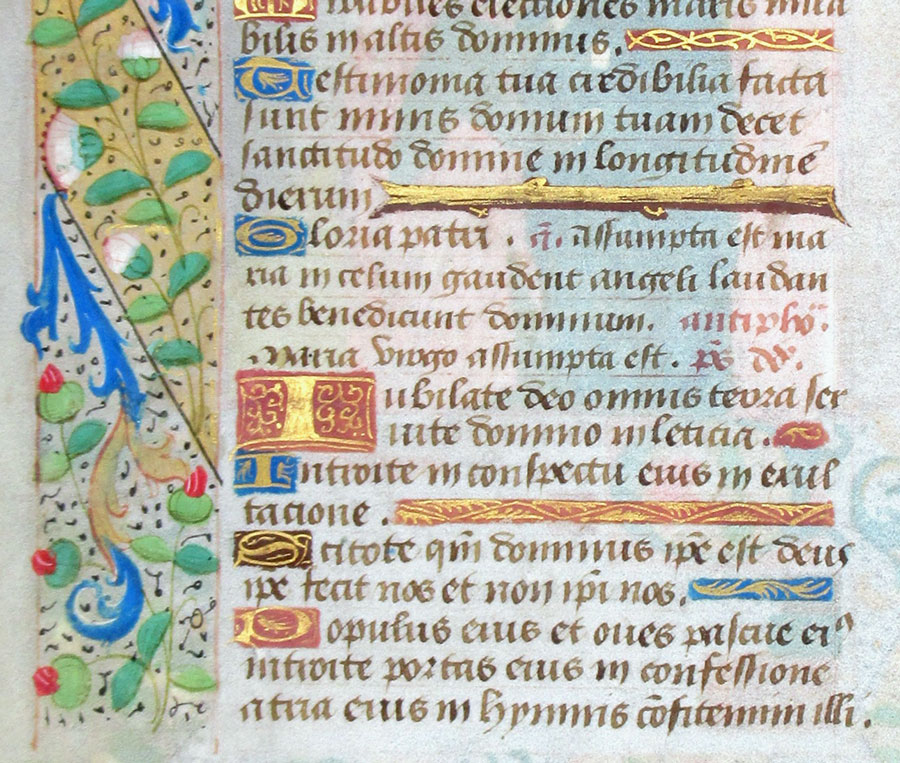 mirabiles elationes maris mira
bilis in altis dominus.
Testimonia tua credibilia facta
sunt nimis domum tuam decet
sanctitudo domine in longitudinē
dierum
Gloria patri . ā. assumpta est ma
ria in celum gaudent angeli laudan
tes benedicunt dominum. antiphō.
Maria virgo assumpta est . p̄s dd̄.
Iubilate deo omnis terra ser
uite domino in leticia.
Introite in conspectu eius in exul
tacione .
Scitote qm̄ dominus ip̄e est deus
ip̄e fecit nos et non ip̄i nos.
Populus eius et oues pascue eiꝰ
introite portas eius in confessione
atria eius in hymnis cōfitemini illi.